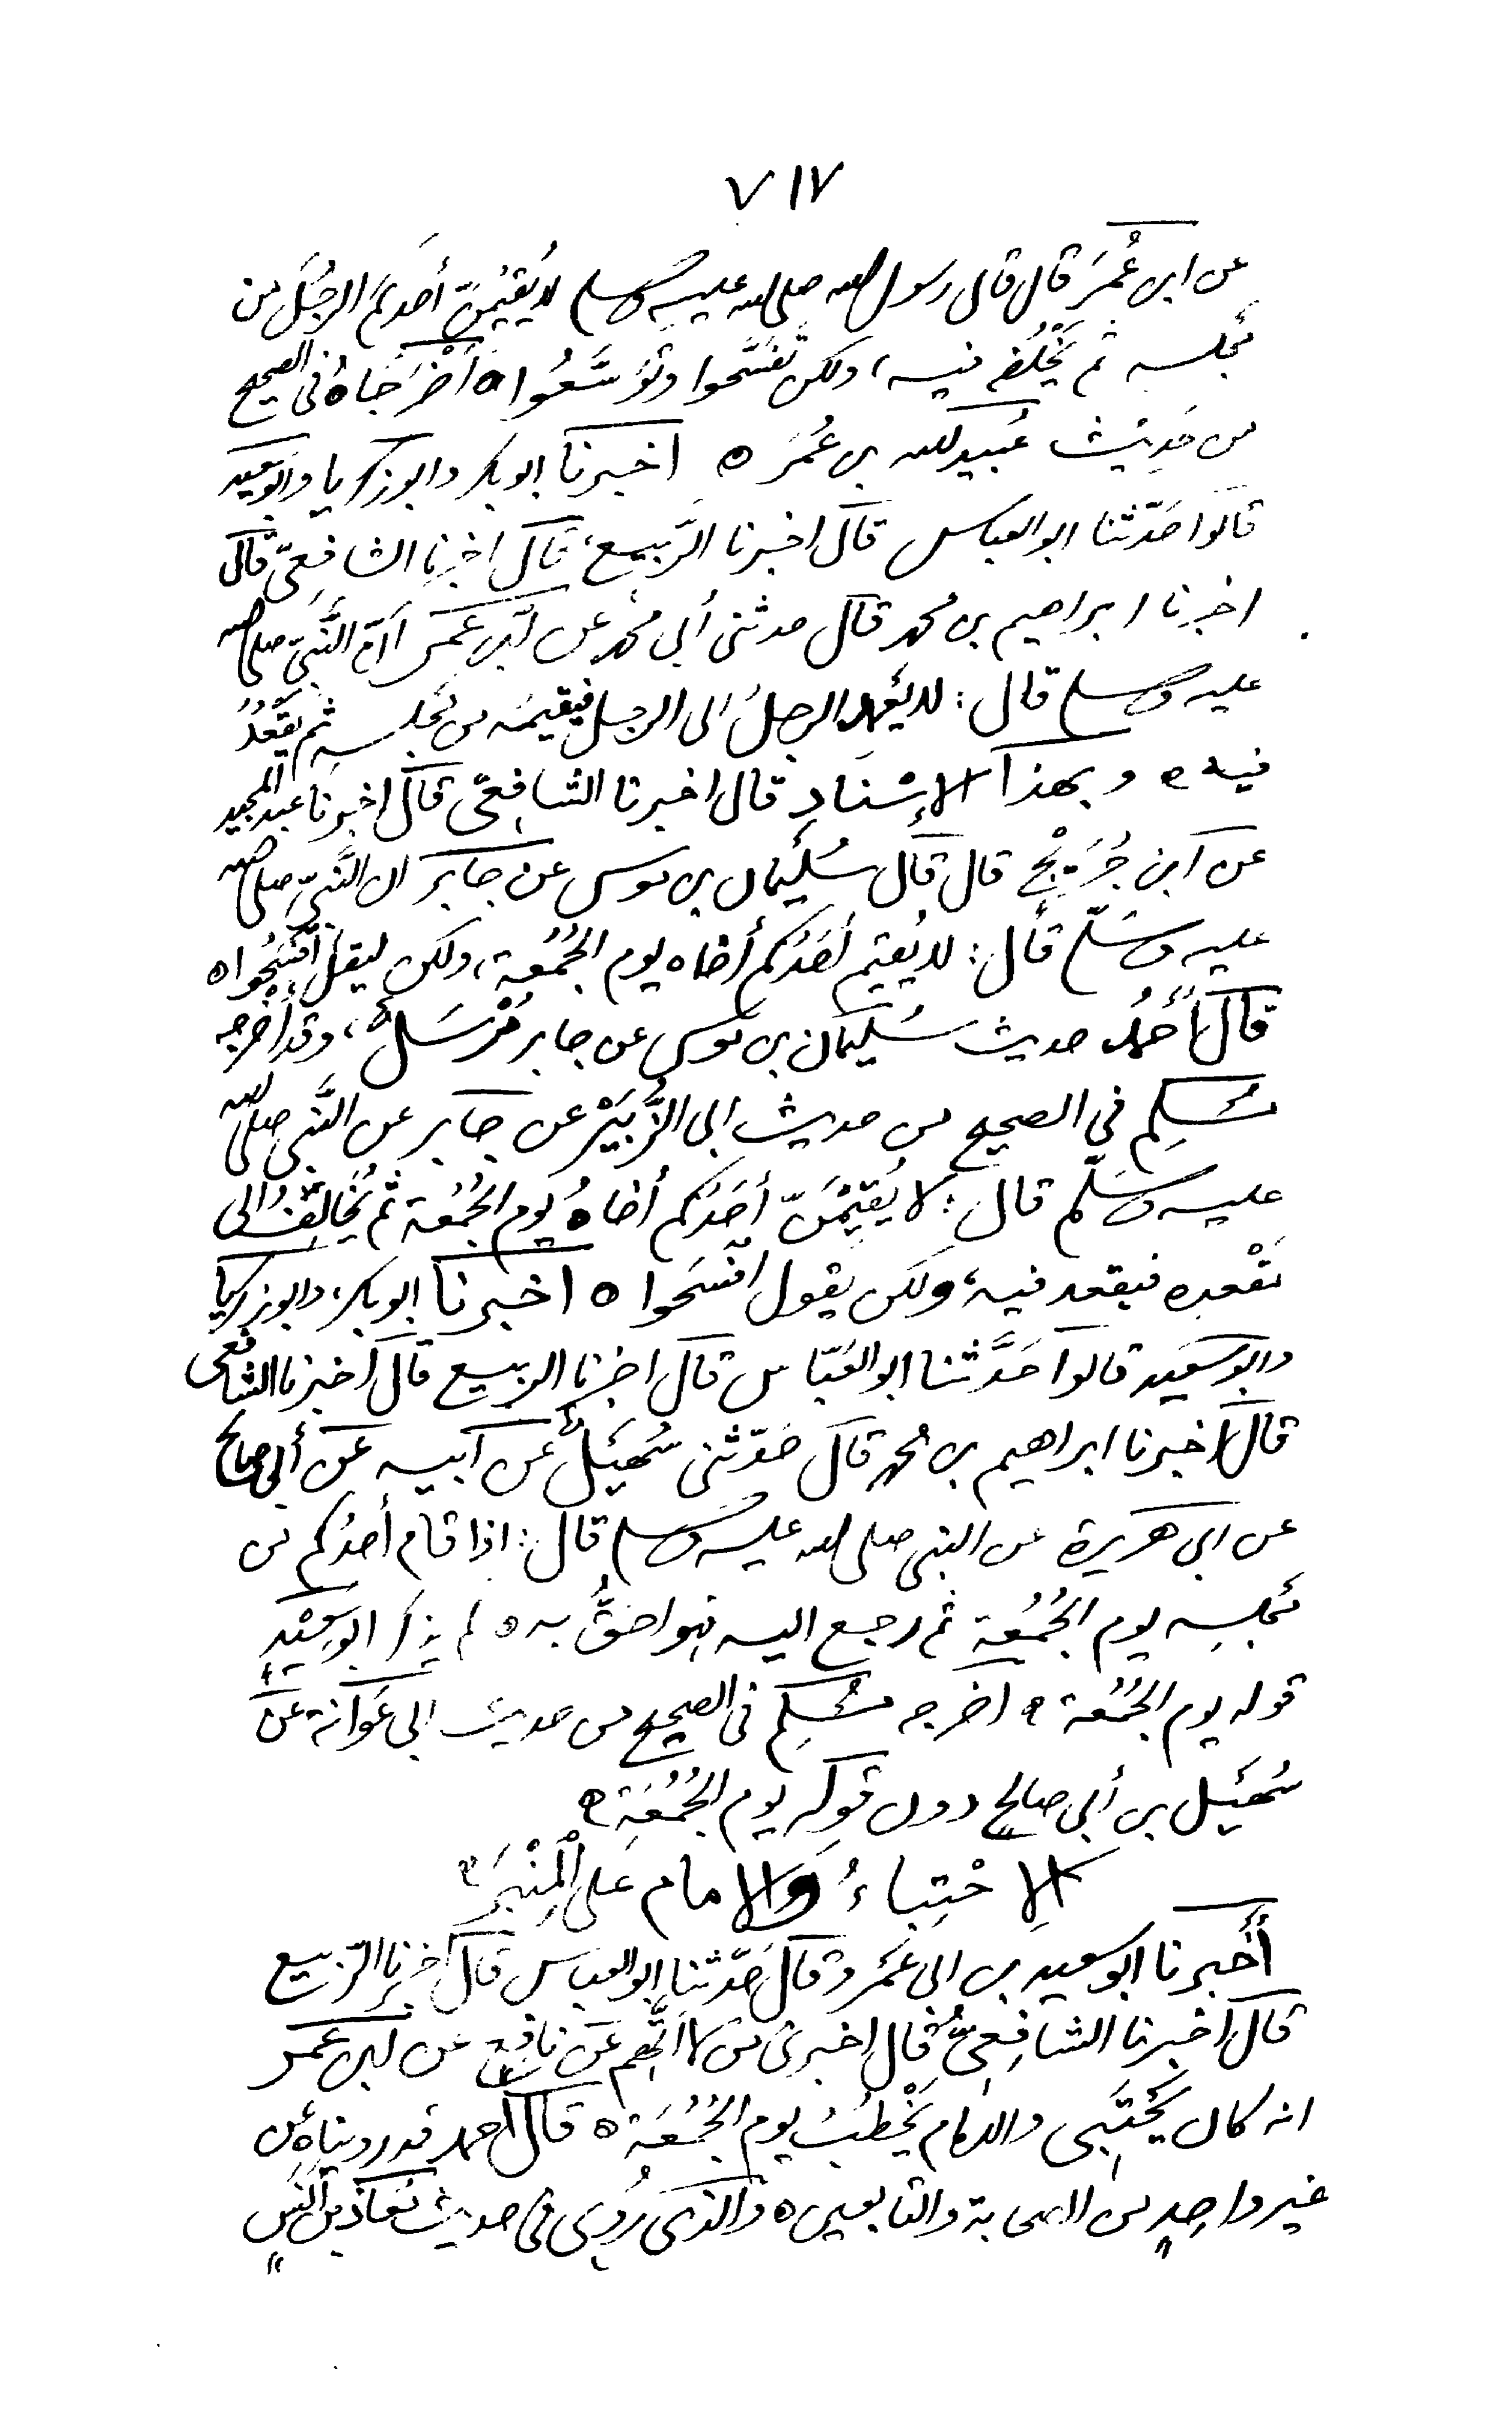 ٧١٧
عن ابن عُمَرَ قال قال رسول الله صلى الله عليه وسلم لا يُقيمَنّ أحدكم الرجُلَ من
مَجلسه ثم يَخْلُفه فيه، ولكن تَفَسَّحوا وتَوَسَّعُوا ٥ أَخْرَجَاهُ في الصحيح
من حَدِيث عُبيد الله بن عُمَرَ ٥ اخبرنا ابو بكر وابو زكريا وابو سعيد
قالوا حَدّثنا ابو العباس قال اخبرنا الرَّبيع، قال اخبرنا الشافِعىّ قال
اخبرنا ابراهيم بن محمد قال حدثنى أبى محمد عن ابن عمر أنّ النَّبىّ صلى الله
عليه وسلم قال: لا يَعمِد الرجلُ الى الرجل فيقيمَه من مَجلسه ثم يَقْعُدُ
فيه ٥ وبهذا الإسْنادِ قال اخبرنا الشافِعىّ قال اخبرنا عبد المجيد
عن ابن جُرَيْجٍ قال قال سُلَيْمان بن موسى عن جابر ان النَّبىّ صلى الله
عليه وسَلّم قال: لا يُقيم أحَدُكم أخاه يوم الجُمُعة، ولكن ليقل أفْسِحُوا ٥
قال أحْمَد حديث سُلَيمان بن موسى عن جابر مُرْسَلٌ، وقد أخرجه
مُسلِم في الصحيح من حديث ابى الزُّبَيْر عن جابر عن النَّبىّ صلى الله
عليه وسَلّم قال: لا يُقيْمَنّ أحَدُكم أخاهُ يَوم الجُمُعة ثم يُخالِفُ الى
مَقْعده فيقعد فيه، ولكن يقول افْسَحوا ٥ اخبرنا ابو بكر، وابو زكريا
وابو سعيد قالوا حَدَّثنا ابو العَبّاس قال اخبرنا الربيع قال اخبرنا الشافعى
قال اخبرنا ابراهيم بن محمد قال حَدّثنى سُهَيْلٌ عن ابيه عن أبى صالح
عن ابى هريرة عن النبى صلى الله عليه وسلم قال: اذا قام أحدُكم من
مَجلسِه يوم الجُمُعة ثم رجع اليه فهو احَقُّ به ٥ لم يذكر ابو سعِيْد
قوله يوم الجُمُعة ٥ اخرجه مُسلِم فى الصحيح من حديث ابى عَوَانة عن
سُهَيْل بن أبى صالح دون قوله يوم الجُمُعَة ٥
الاحْتِباءُ والامام عَلى الْمِنْبَر ٥
أخْبرنا ابو سعيد بن ابى عَمْرو قال حَدّثنا ابو العباس قال اخبرنا الرّبيع
قال اخبرنا الشافِعِىُّ قال اخبرنى من لا اتَّهِم عن نافع عن ابن عمر
انه كان يَحْتَبِى والامام يَخْطُبُ يوم الجُمُعَة ٥ قال احمد قد رويناه عن
غير واحدٍ من الصحابة والتابعين ٥ والذى رُوِى فى حديث مُعاذ بن أنَسٍ